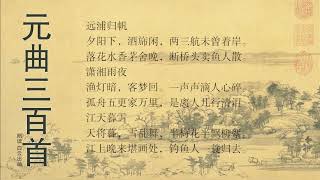 元曲三百首
远浦归帆
夕阳下，酒旆闲，两三航未曾着岸。
落花水香茅舍晚，断桥头卖鱼人散
潇湘雨夜
渔灯暗，客梦回。一声声滴人心碎。
孤舟五更家万里，是离人几行清泪
江天暮雪
天将暮，雪乱舞，半梅花半飘柳絮。
江上晚来堪画处，钓鱼人一蓑归去